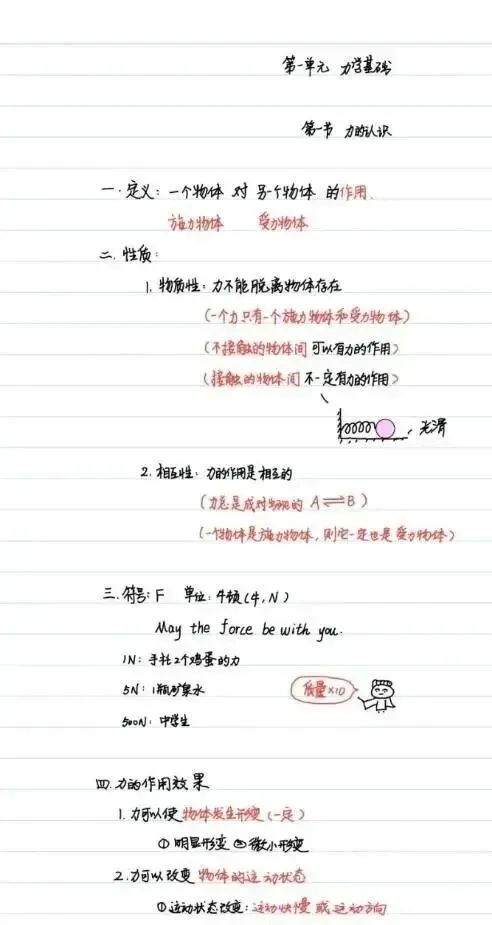 第一单元 力学基础
第一节 力的认识
一.定义: 一个物体 对 另一个物体 的作用.
施力物体 受力物体
二.性质:
1. 物质性: 力不能脱离物体存在
(一个力只有一个施力物体和受力物体)
(不接触的物体间可以有力的作用)
(接触的物体间不一定有力的作用)
光滑
2. 相互性: 力的作用是相互的
(力总是成对出现的 A⇌B)
(一个物体是施力物体, 则它一定也是受力物体)
三.符号: F 单位: 牛顿(牛, N)
May the force be with you.
1N: 手托2个鸡蛋的力
5N: 1瓶矿泉水
质量×10
500N: 中学生
四.力的作用效果
1. 力可以使物体发生形变(一定)
① 明显形变 ② 微小形变
2. 力可以改变物体的运动状态
① 运动状态改变: 运动快慢或运动方向